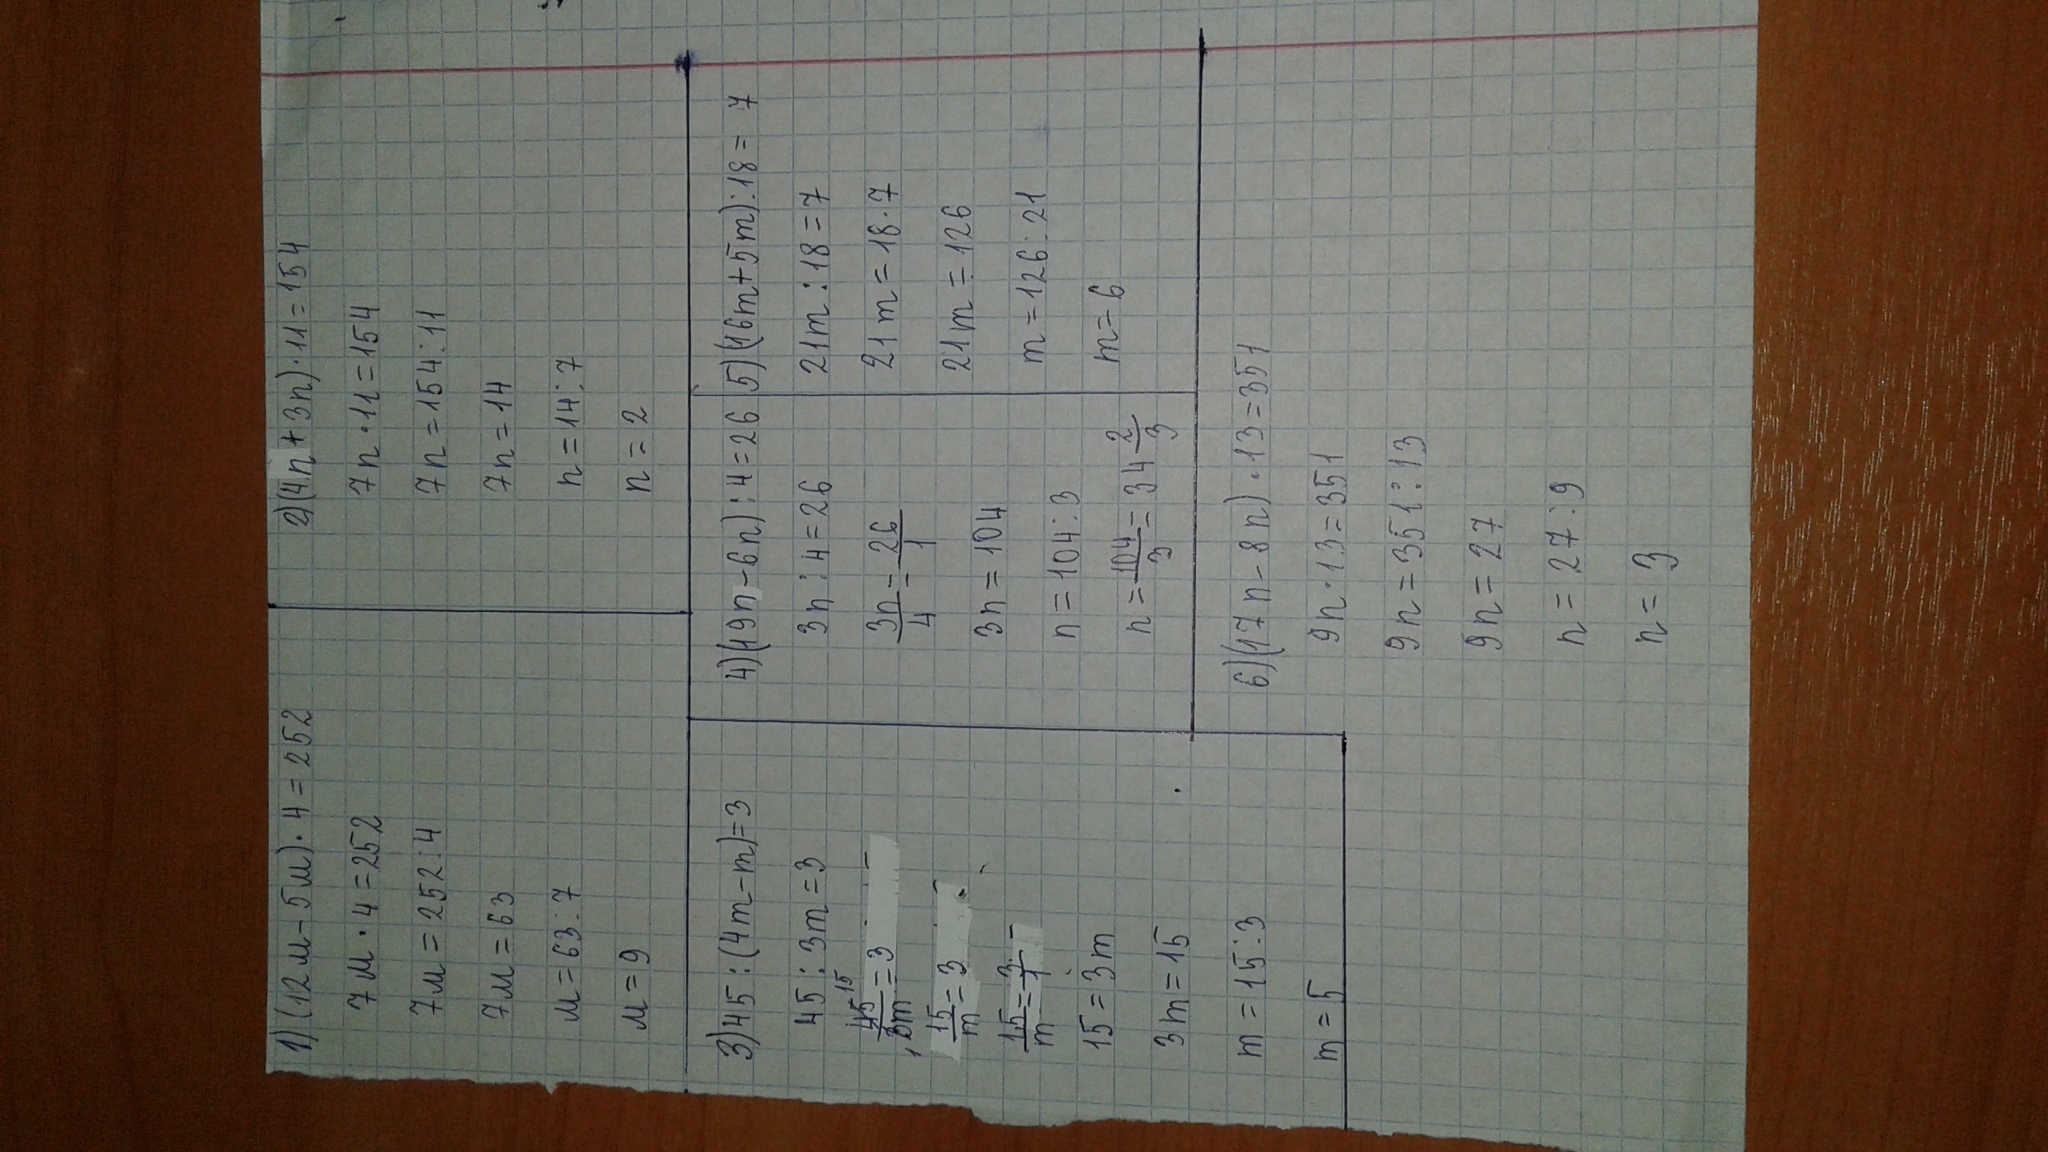 1) (12м-5м)·4=252
7м·4=252
7м=252:4
7м=63
м=63:7
м=9
2)(4n+3n)·11=154
7n·11=154
7n=154:11
7n=14
n=14:7
n=2
3)45:(4m-m)=3
45:3m=3
45 15/3m=3
15/m=3
15/m=3/1
15=3m
3m=15
m=15:3
m=5
4)(19n-6n):4=26
3n:4=26
3n/4=26/1
3n=104
n=104:3
n=104/3=34 2/3
5)(16m+5m):18=7
21m:18=7
21m=18·7
21m=126
m=126:21
m=6
6)(17n-8n)·13=351
9n·13=351
9n=351:13
9n=27
n=27:9
n=3